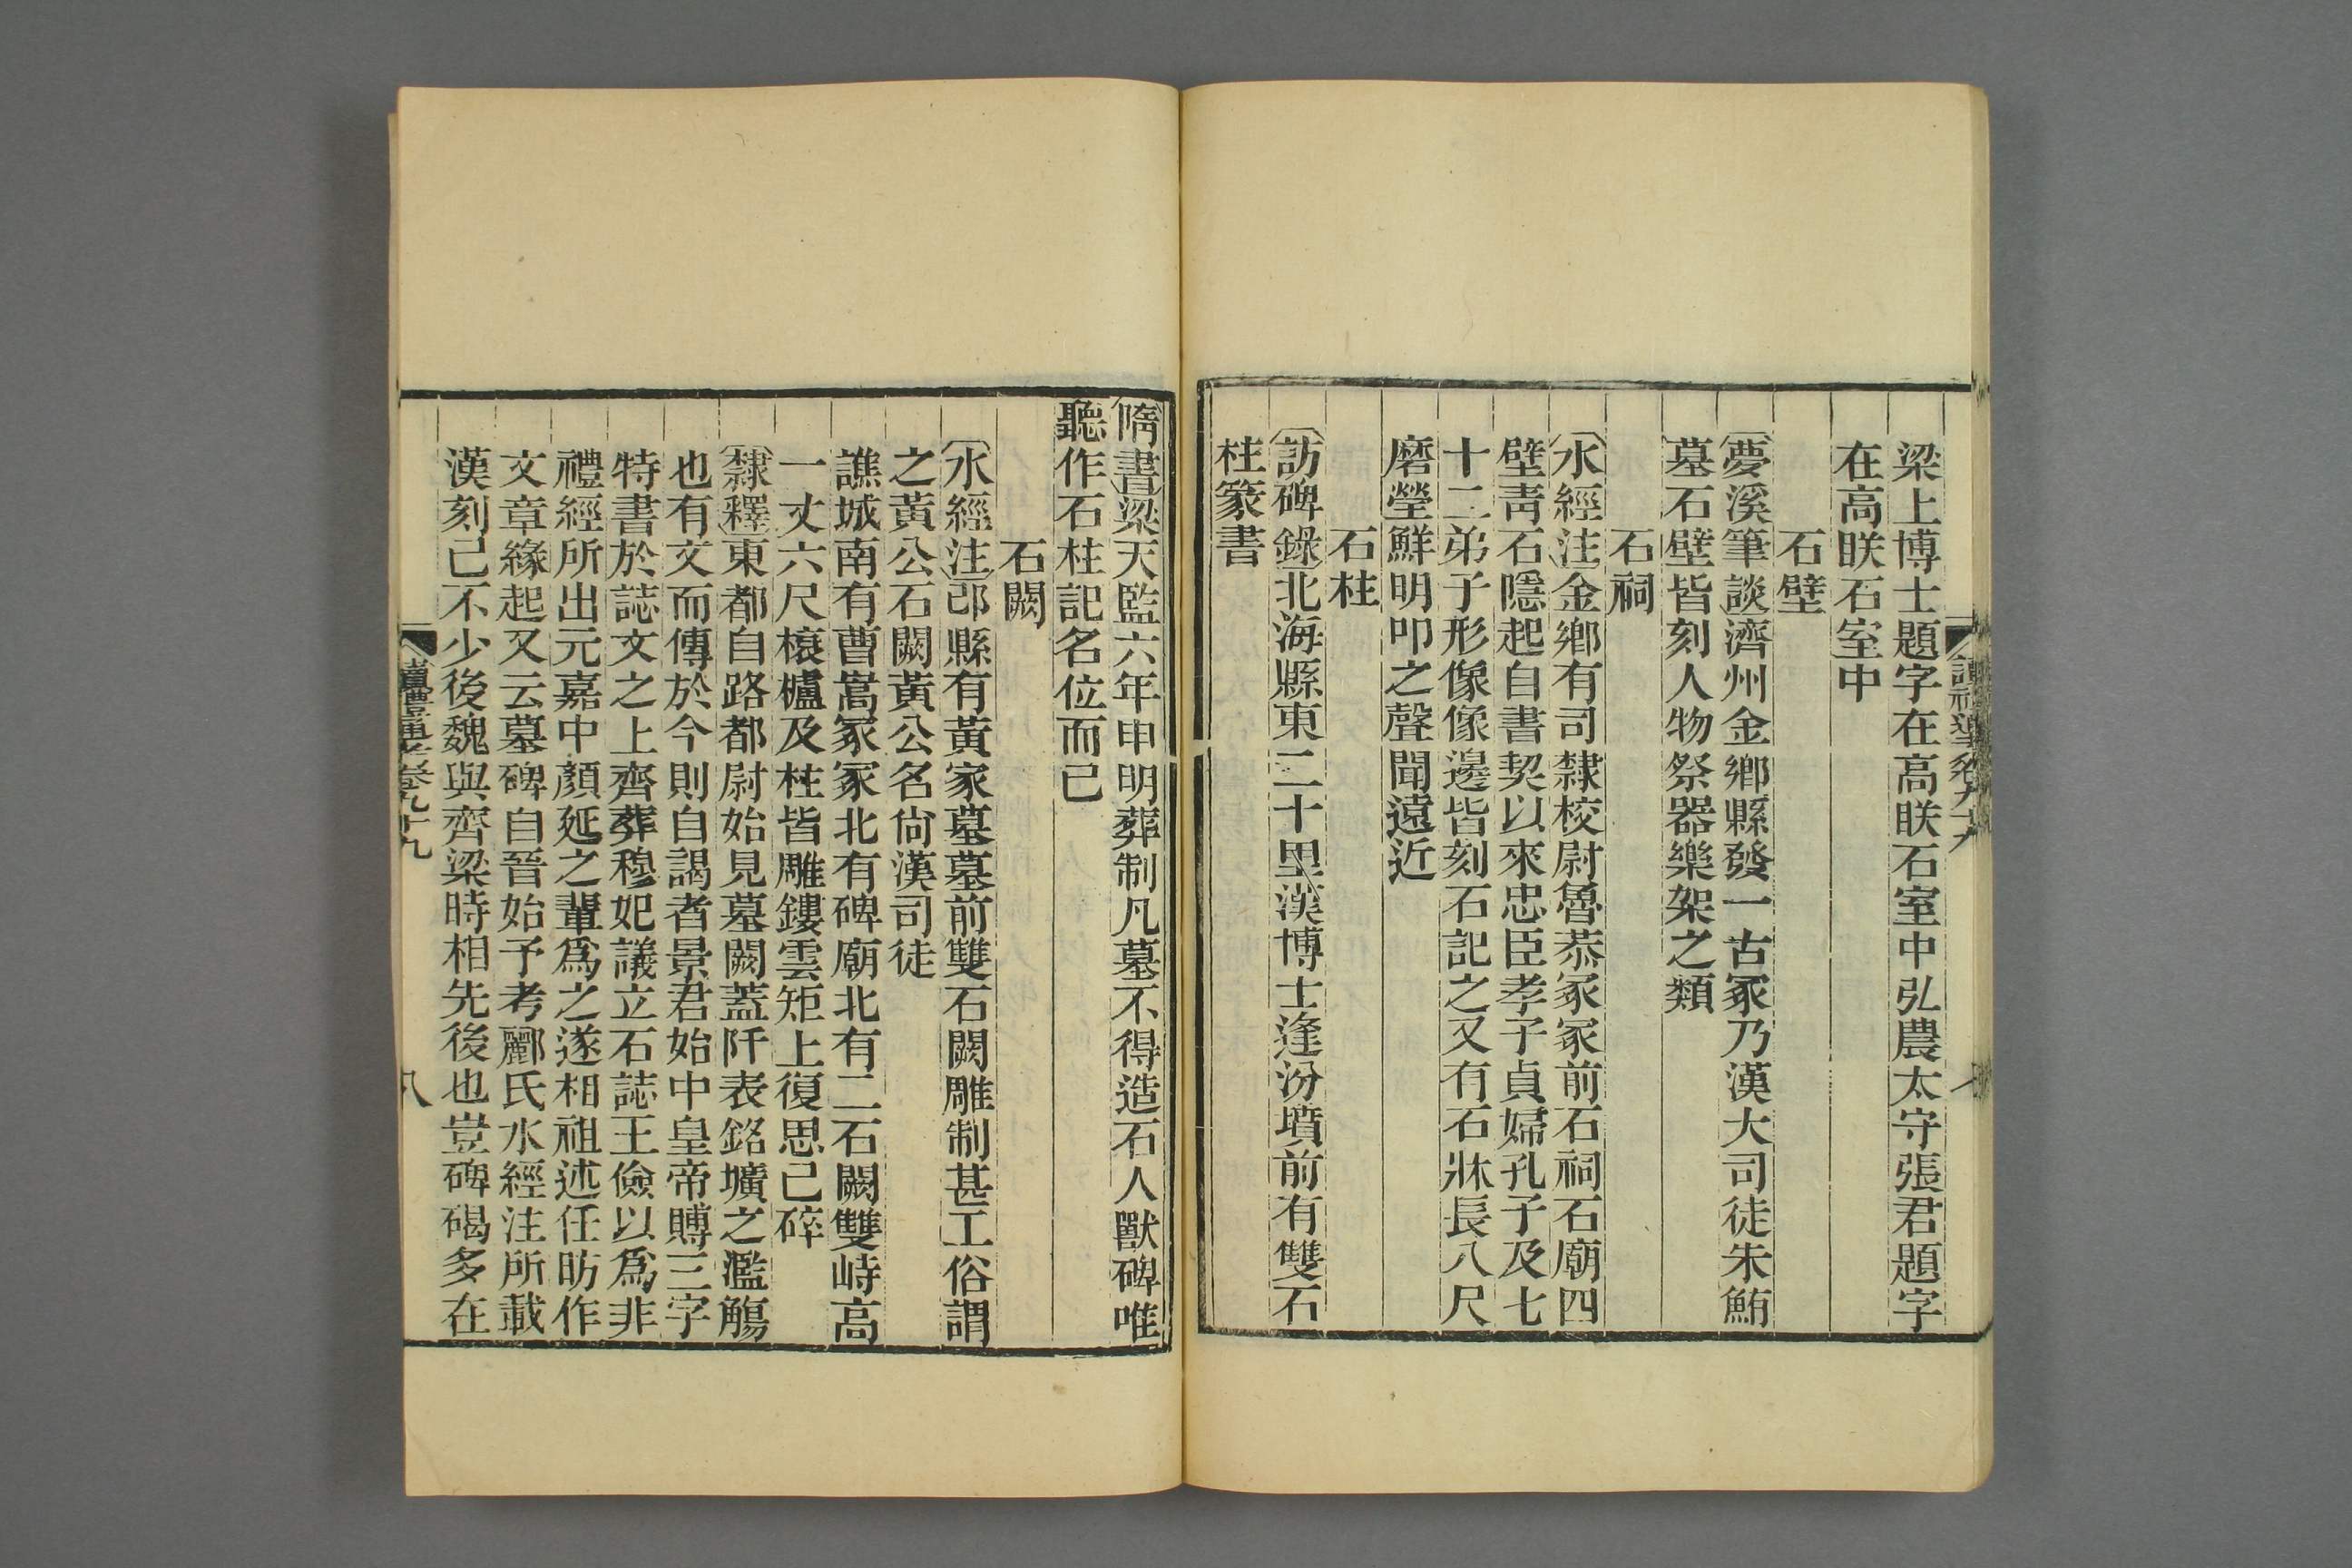 梁上博士題字在高眹石室中弘農太守張君題字
在高眹石室中
石壁
夢溪筆談濟州金鄉縣發一古冢乃漢大司徒朱鮪
墓石壁皆刻人物祭器樂架之類
石祠
水經注金鄉有司隸校尉魯恭冢冢前石祠石廟四
壁青石隱起自書契以來忠臣孝子貞婦孔子及七
十二弟子形像像邊皆刻石記之又有石牀長八尺
磨瑩鮮明叩之聲聞遠近
石柱
訪碑錄北海縣東二十里漢博士逢汾墳前有雙石
柱篆書
隋書梁天監六年申明葬制凡墓不得造石人獸碑唯
聽作石柱記名位而已
石闕
水經注邔縣有黃家墓墓前雙石闕雕制甚工俗謂
之黃公石闕黃公名尚漢司徒
譙城南有曹嵩冢冢北有碑廟北有二石闕雙峙高
一丈六尺榱櫨及柱皆雕鏤雲矩上復思已碎
隸釋東都自路都尉始見墓闕蓋阡表銘壙之濫觴
也有文而傳於今則自謁者景君始中皇帝賻三字
特書於誌文之上齊葬穆妃議立石誌王儉以爲非
禮經所出元嘉中顏延之輩爲之遂相祖述任昉作
文章緣起又云墓碑自晉始予考酈氏水經注所載
漢刻已不少後魏與齊梁時相先後也豈碑碣多在
讀禮通考卷九十九
八